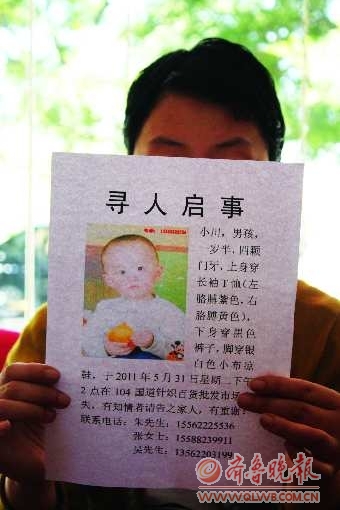 寻人启事
小川，男孩，
一岁半，四颗
门牙，上身穿
长袖T恤(左
胳膊紫色，右
胳膊黄色)，
下身穿黑色
裤子，脚穿银
白色小布凉
鞋，于2011年5月31日星期二下午
2点在104国道针织百货批发市场
失，有知情者请告之家人，有重谢！
联系电话：朱先生：15562225536
张女士：15588239911
吴先生：13562203199
齐鲁晚报
WWW.QLWB.COM.CN